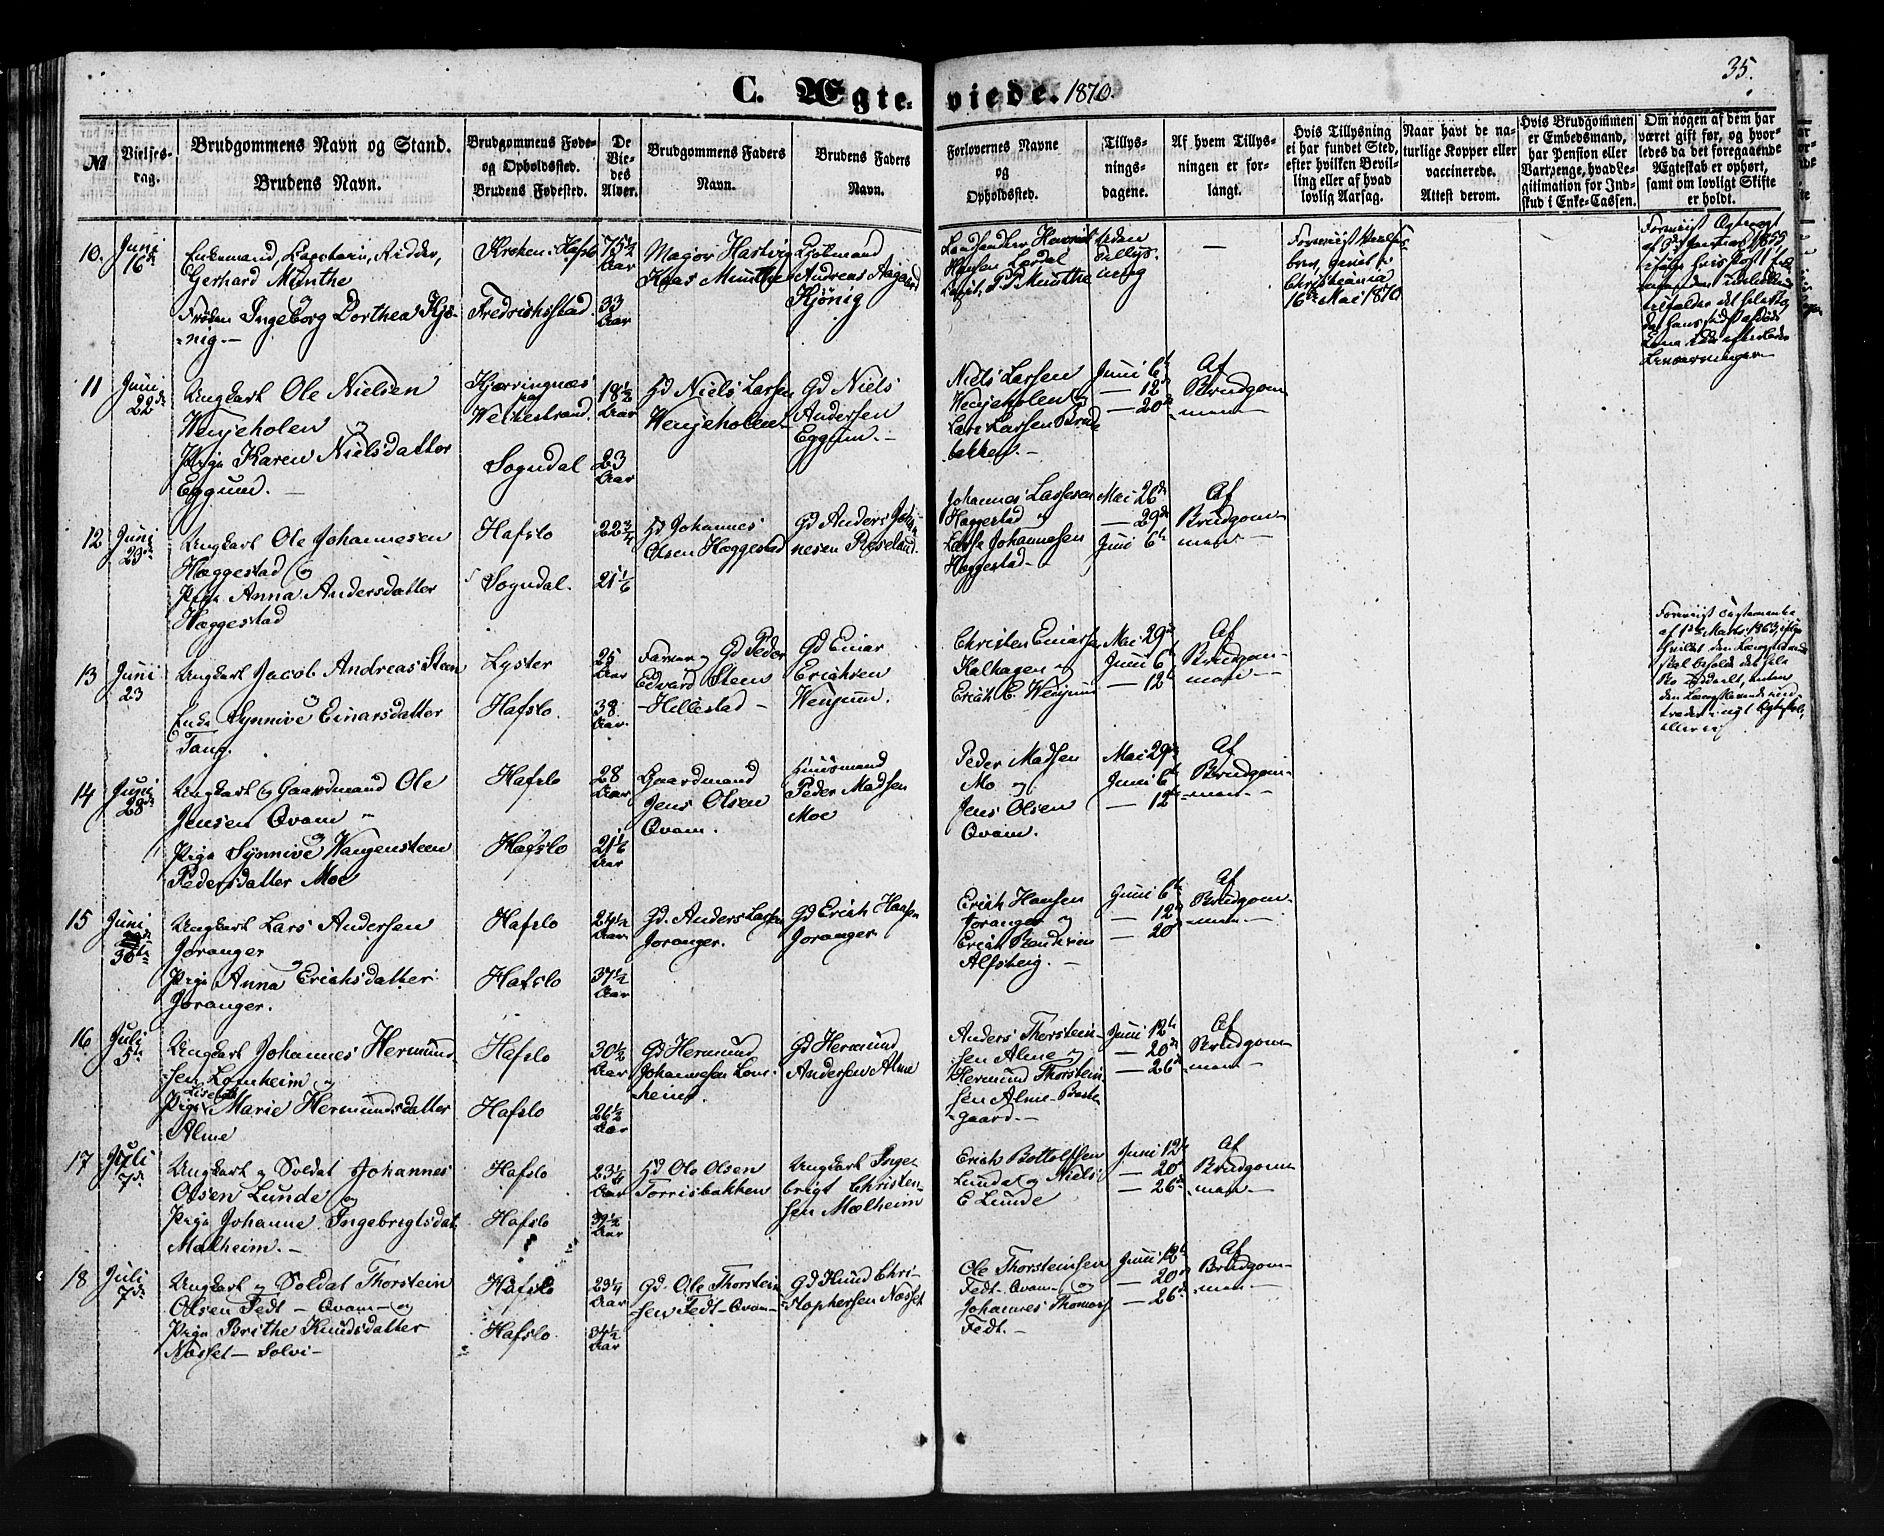 35.
C. Ægte-viede. 1870.
№
Vielses-
tag.
Brudgommens Navn og Stand.
Brudens Navn.
Brudgommens Føde-
og Opholdssted.
Brudens Fødested.
De
Vie-
des
Alver.
Brudgommens Faders
Navn.
Brudens Faders
Navn.
Forlovernes Navne
og
Opholdssted.
Tillys-
nings-
dagene.
Af hvem Tillys-
ningen er for-
langt.
Hvis Tillysning
ei har fundet Sted,
efter hvilken Bevil-
ling eller af hvad
lovlig Aarsag.
Naar havt de na-
turlige Kopper eller
vaccinerede.
Attest derom.
Hvis Brudgommen
er Embedsmand,
har Pension eller
Vartpenge, hvad Le-
gitimation for Ind-
skud i Enke-Cassen.
Om nogen af dem har
været gift før, og hvor-
ledes da det foregaaende
Ægteskab er ophørt,
samt om lovligt Skifte
er holdt.
10. Juni
16de
Enkemand, Ridder,
Gerhard Munthe
Frøken Ingeborg Dorthea Kjø-
nig.-
Kroken. Hafslo
Fredrichsstad
75 1/4
Aar
33
Aar
Major Hartvig
Kaas Munthe
Andreas Aagaard
Kjønig
Lærdal
Munthe
uden
Tillys-
ning
—
Foreviist
Christiania
16de Mai 1870
Foreviist
11 Juni
22de
Ungkarl Ole Nielsen
Wenjeholen og
Pige Karen Nielsdatter
Eggum. —
Kjærringnæs
paa
Wettestrand.
Sogndal
18 1/2
Aar
23
Aar
Hd Niels Larsen
Wenjeholen
Gd Niels
Andersen
Eggum.-
Niels Larsen
Wenjeholen og
Lars Larsen
bakken.-
Juni 6te
— 12te
— 20de
Af
Brudgom-
men
12 Juni
23de
Ungkarl Ole Johannesen
Hæggestad og
Pige Anna Andersdatter
Hæggestad
Hafslo
Sogndal.
22 3/4
21 1/6
Hd Johannes
Olsen Hæggestad
Gd Anders Johan-
nesen
Johannes Lassesen
Haggestad og
Lasse Johannesen
Haggestad-
Mai 26de
— 29de
Juni 6te
Af
Brudgom-
men
13 Juni
23
Ungkarl Jacob Andreas Steen
og
Enke Synnive Einarsdatter
Tang.
Lyster
Hafslo.
25
Aar
38
Aar
Gd Peder
Edvard Steen
-Hillestad-
Gd Einar
Erichsen
Wenjum.
Christen Einarsen
Kalhagen og
Erich E. Wenjum
Mai 29de
Juni 6te
— 12te
Af
Brudgom-
men
Foreviist
14 Juni
28de
Ungkarl og Gaardmand Ole
Jensen Qvam
og
Pige Synnive Wangensteen
Pedersdatter Moe
Hafslo
Hafslo
28
Aar
21 1/6
Aar
Gaardmand
Jens Olsen
Qvam.
Huusmand
Peder Madsen
Moe
Peder Madsen
Mo og
Jens Olsen
Qvam.
Mai 29de
Juni 6te
— 12te
Af
Brudgom-
men
15 Juni
30te
Ungkarl Lars Andersen
Joranger
og
Pige Anna Erichsdatter
Joranger.
Hafslo
Hafslo
24 1/2
Aar
37 1/2
Aar
Gd. Anders Larsen
Joranger.
Gd Erich Hansen
Joranger
Erich Hansen
Joranger og
Erich
Alfsteig.-
Juni 6te
— 12te
— 20de
Af
Brudgom-
men
16 Juli
5te
Ungkarl Johannes Hermund-
sen Lomheim og
Pige Lisebet Marie Hermundsdatter
Alme
Hafslo
Hafslo
30 1/2
Aar
26 1/2
Aar
Gd Hermund
Johannesen Lom-
heim
Gd Hermund
Andersen Alme
Anders Thorstein-
sen Alme og
Hermund Thorstein-
sen Alme
gaard.-
Juni 12te
— 20de
— 26de
Af
Brudgom-
men
17 Juli
7de
Ungkarl og Soldat Johannes
Olsen Lunde og
Pige Johanne Ingebrigtsdat.
Malheim.-
Hafslo
Hafslo
23 1/6
Aar
Aar
Hd Ole Olsen
Torrisbakken
Ungkarl Inge-
brigt Christen-
sen Mælheim
Erich Bottolfsen
Lunde og Niels
E Lunde
Juni 12te
— 20de
— 26de
Af
Brudgom-
men
18 Juli
7de
Ungkarl og Soldat Thorstein
Olsen Fedt - Qvam- og
Pige Brithe Knudsdatter
Næsset- Solvi-
Hafslo
Hafslo.
23 1/4
Aar
34 1/2
Aar
Gd- Ole Thorstein-
sen Fedt- Qvam-
Gd Knud Chri-
stophersen Næsset
Ole Thorsteinsen
Fedt-Qvam- og
Johannes Thomass
Fedt.-
Juni 12te
— 20de
— 26de
Af
Brudgom-
men